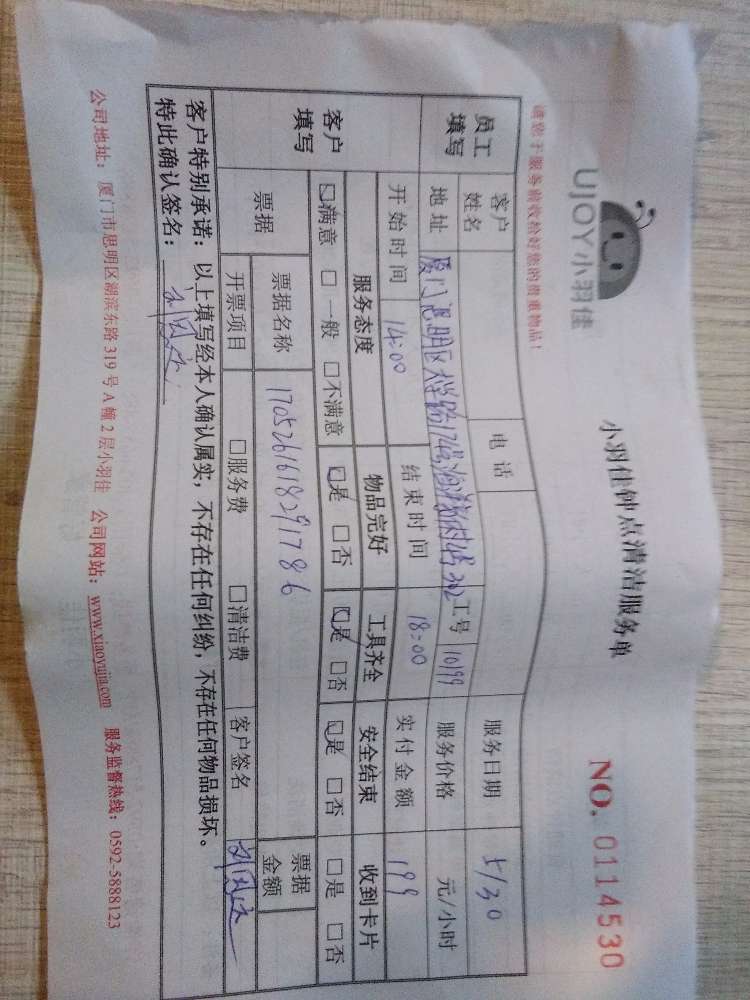 UJOY小羽佳
小羽佳钟点清洁服务单
NO. 0114530
请您于服务前收检好您的贵重物品!
员工填写 客户姓名 电话 服务日期 5/30
地址 厦门思明区 工号 10199 服务价格 元/小时
开始时间 14:00 结束时间 18:00 实付金额 199
客户填写 服务态度 物品完好 工具齐全 安全结束 收到卡片
☑满意 □一般 □不满意 ☑是 □否 ☑是 □否 ☑是 □否 □是 □否
票据 票据名称 1705261618291786 票据金额
开票项目 □服务费 □清洁费 客户签名
客户特别承诺:以上填写经本人确认属实,不存在任何纠纷,不存在任何物品损坏。
特此确认签名:
公司地址:厦门市思明区湖滨东路319号A幢2层小羽佳 公司网站:www.xiaoyujia.com 服务监督热线:0592-5888123